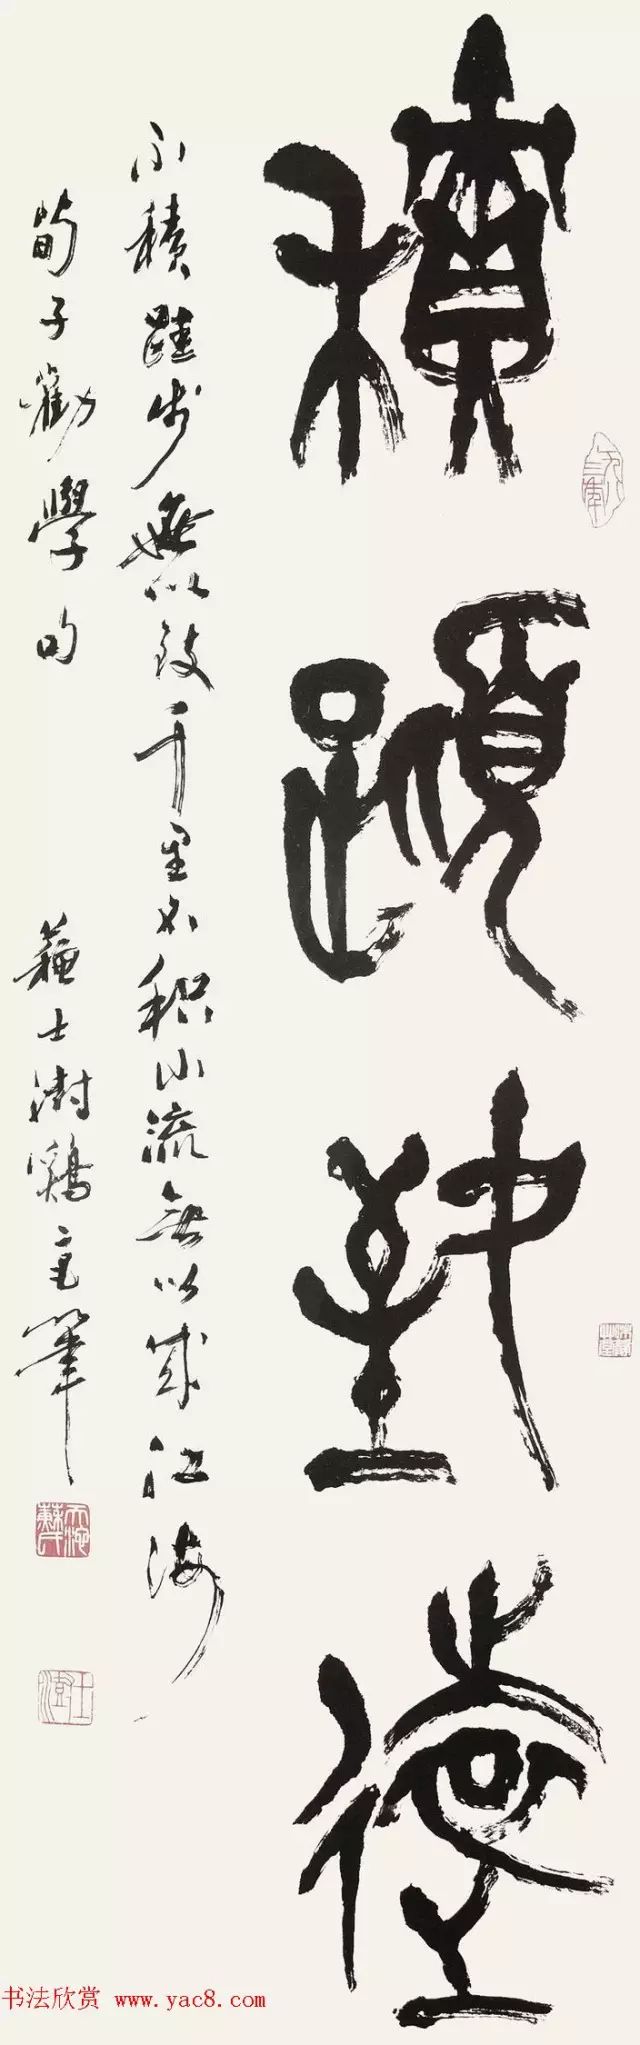 積蹞致遠
不積跬步無以致千里不积小流無以成江海
荀子勸學句 蘇士澍鷄毫筆
书法欣赏 www.yac8.com